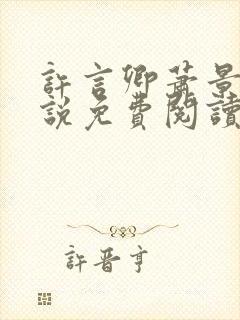 許言卿蕭景
說免費閱讀
許晉亨